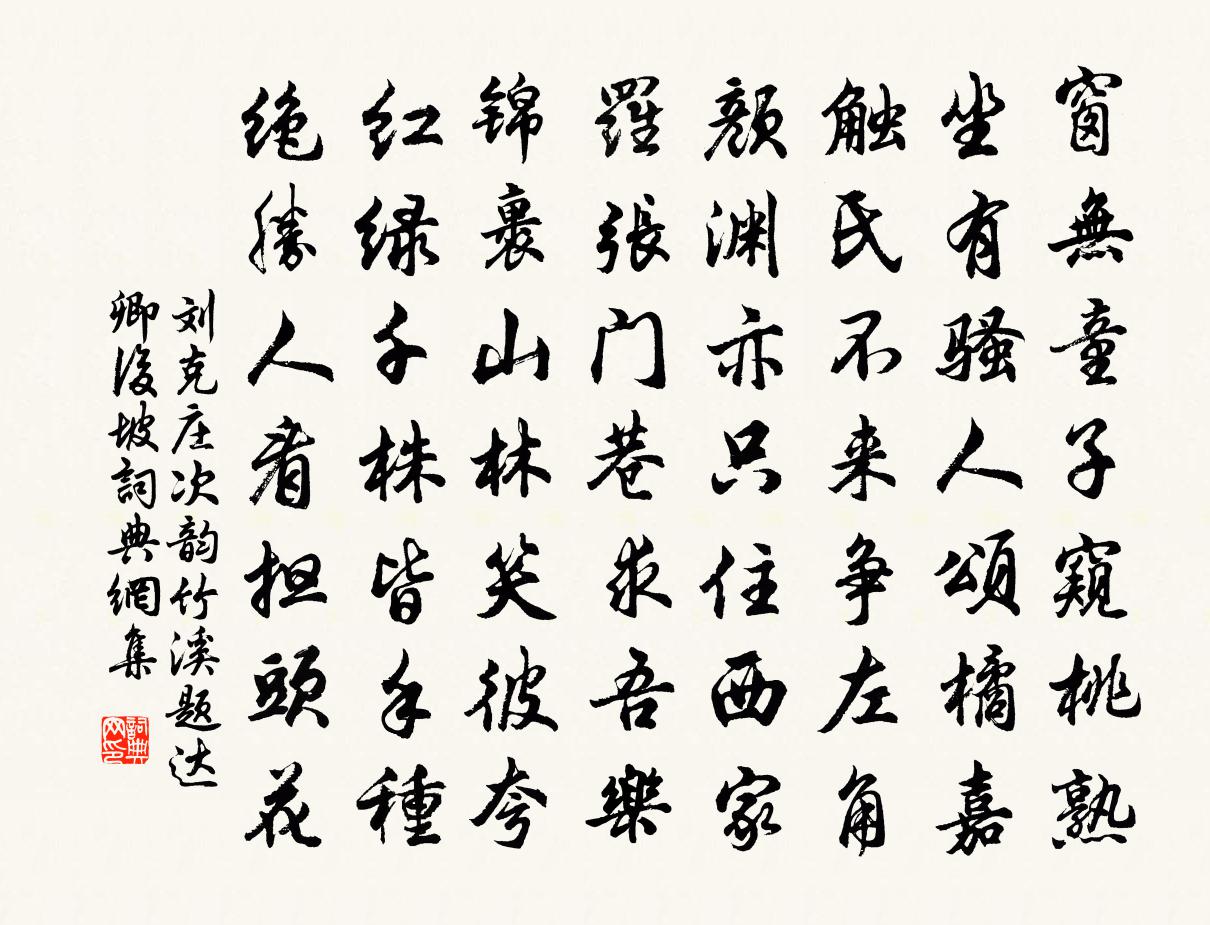 窗無童子窺桃熟
坐有骚人頌橘嘉
触氏不来争左角
颜渊亦只住西家
羅張门巷求吾樂
锦裹山林笑彼夸
红绿千株皆手種
绝勝人看担頭花
刘克庄次韵竹溪题达
卿後坡詞典網集
詞典网印